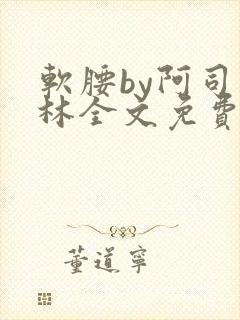 軟腰by阿司
林全文免費
董道寧